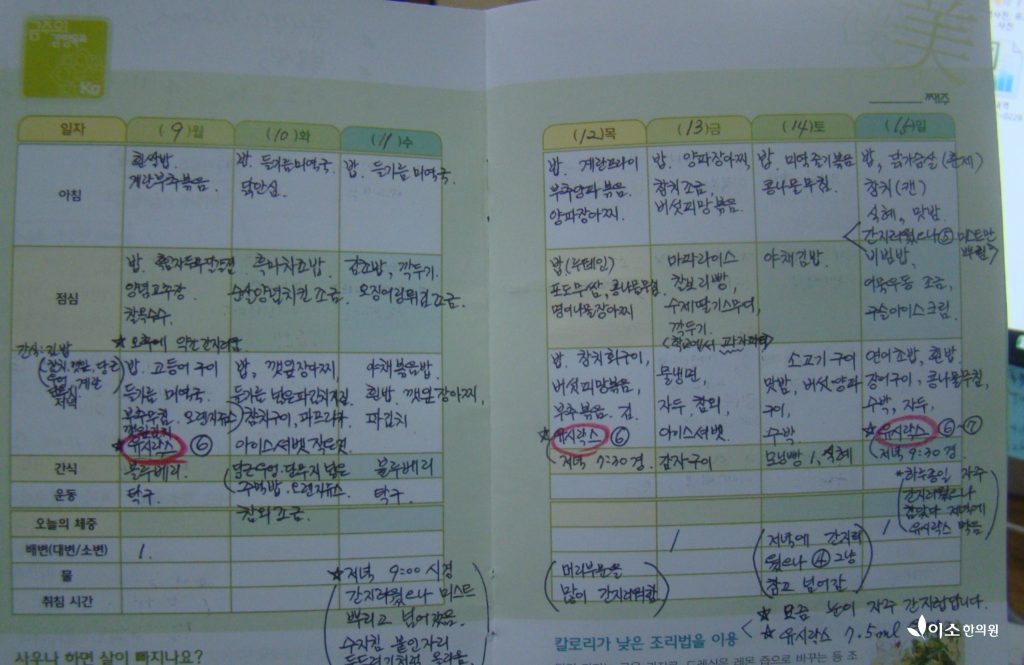 금주의
감량목표
Kg
美
째주
일자
(9)월
(10)화
(11)수
(12)목
(13)금
(14)토
(15)일
아침
흰쌀밥.
계란부추볶음.
밥. 들기름미역국.
닭안심.
밥. 들기름 미역국.
밥. 계란프라이
부추양파 볶음.
양파장아찌.
밥. 양파장아찌,
참치조금,
버섯피망볶음.
밥. 미역줄기볶음
콩나물무침.
밥, 닭가슴살(훈제)
참치(캔)
식혜, 맛밤.
간지러웠으나 ⑤ 미스트만
뿌림
점심
밥.
양념고추장
찰옥수수.
★ 오후에 약간 간지러함
흑마차조밥.
순살양념치킨 조금.
김초밥, 깍두기.
오징어링튀김 조금.
밥(
포도무쌈, 콩나물무침.
명이나물장아찌
마파라이스
찰보리빵,
수제딸기스무디,
깍두기.
(학교에서
야채김밥
비빔밥,
어묵우동 조금,
구슬아이스크림.
간식: 김밥
저녁
밥. 고등어구이
들기름 미역국.
부추무침. 오렌지쥬스
★ 유시락스 ⑥
밥, 깻잎장아찌,
들기름 넣은파김치지짐
참치구이, 파프리카
아이스셔벳 작은것
야채볶음밥.
흰밥, 깻잎장아찌,
파김치
밥. 참치회구이,
버섯피망볶음,
부추볶음. 김.
★ 유시락스 ⑥
(저녁 7:30경.
물냉면,
자두, 참외,
아이스셔벳.
소고기 구이
맛밤, 버섯양파
구이,
수박.
연어초밥, 흰밥.
장어구이, 콩나물무침,
수박, 자두,
★ 유시락스 ⑥-⑦
(저녁 9:30경.
간식
블루베리
당근우엉.단무지 넣은
주먹밥.오렌지쥬스.
참외조금.
블루베리
감자구이
모닝빵 1, 식혜
운동
탁구.
탁구.
*하루종일 자주
간지러웠으나
참았다 저녁에
유시락스 먹음
오늘의 체중
배변(대변/소변)
1.
1
1
물
취침 시간
★ 저녁 9:00 시경
간지러웠으나 미스트
뿌리고 넘어갔음.
수지침 붙인자리
두드러기처럼 올라옴
머리부분을
많이 간지러워함
저녁에 간지러
웠으나 ④ 그냥
참고 넘어감
★ 요즘 눈이 자주 간지럽답니다.
★ 유시락스 7.5ml
사우나 하면 살이 빠지나요?
칼로리가 낮은 조리법을 이용
이소한의원